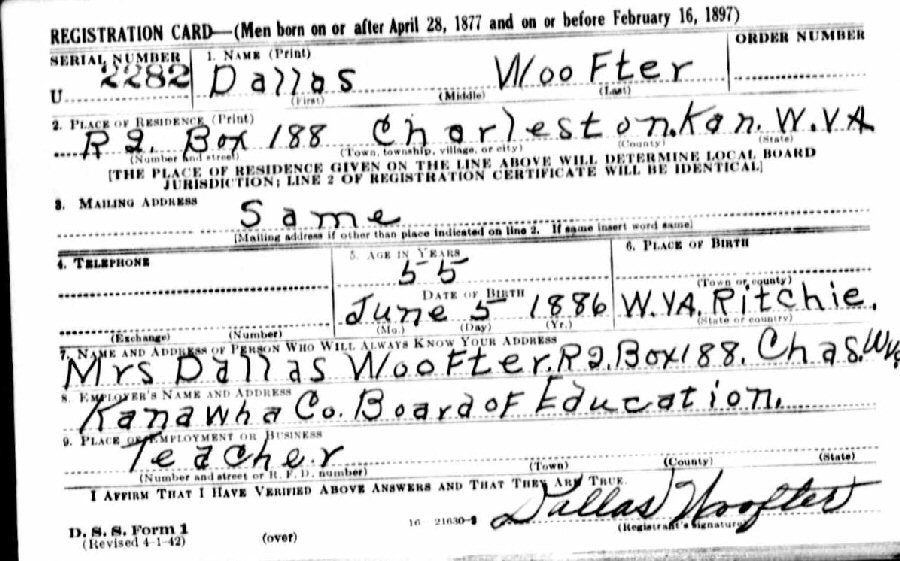 REGISTRATION CARD—(Men born on or after April 28, 1877 and on or before February 16, 1897)
SERIAL NUMBER 1. NAME (Print) ORDER NUMBER
U 2282 Dallas Woofter
(First) (Middle) (Last)
2. PLACE OF RESIDENCE (Print)
R 2. Box 188 Charleston. Kan. W. VA
(Number and street) (Town, township, village, or city) (County) (State)
[THE PLACE OF RESIDENCE GIVEN ON THE LINE ABOVE WILL DETERMINE LOCAL BOARD
JURISDICTION; LINE 2 OF REGISTRATION CERTIFICATE WILL BE IDENTICAL]
3. MAILING ADDRESS
Same
[Mailing address if other than place indicated on line 2. If same insert word same]
4. TELEPHONE 5. AGE IN YEARS 6. PLACE OF BIRTH
55
DATE OF BIRTH (Town or county)
June 5 1886 W. VA. Ritchie.
(Exchange) (Number) (Mo.) (Day) (Yr.) (State or country)
7. NAME AND ADDRESS OF PERSON WHO WILL ALWAYS KNOW YOUR ADDRESS
Mrs Dallas Woofter. R 2. Box 188. Chas. W Va
8. EMPLOYER'S NAME AND ADDRESS
Kanawha Co. Board of Education.
9. PLACE OF EMPLOYMENT OR BUSINESS
Teacher
(Number and street or R. F. D. number) (Town) (County) (State)
I AFFIRM THAT I HAVE VERIFIED ABOVE ANSWERS AND THAT THEY ARE TRUE.
Dallas Woofter
D. S. S. Form 1 16—21630-2 (Registrant's signature)
(Revised 4-1-42) (over)